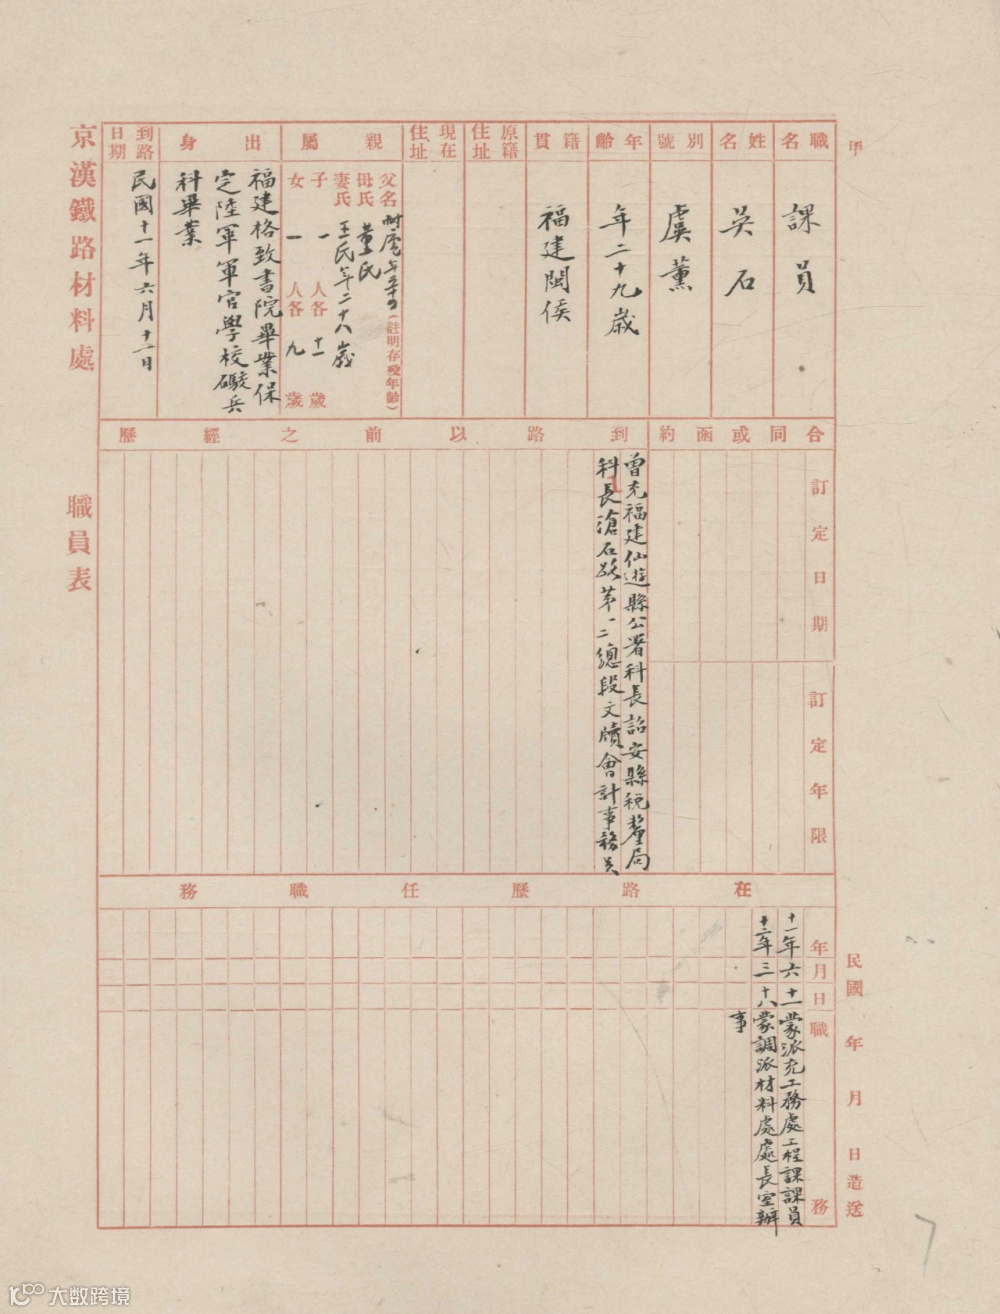 甲
職名
課員
姓名
吳石
別號
虞薰
年齡
年二十九歲
籍貫
福建閩侯
原籍住址
現在住址
親屬
父名 耐虛 (註明存歿年齡)
母氏 董氏
妻氏 王氏年二十八歲
子 一 人各 十一 歲
女 一 人各 九 歲
出身
福建格致書院畢業保
定陸軍軍官學校礮兵
科畢業
到路日期
民國十一年六月十一日
京漢鐵路材料處 職員表
合同或函約
訂定日期
訂定年限
到路以前之經歷
曾充福建仙遊縣公署科長詔安縣稅釐局
科長滄石路第一二總段文牘會計事務員
在路歷任職務
年月日 職務
十一年六 十一 蒙派充工務處工程課課員
十二年三 十八 蒙調派材料處處長室辦
事
民國 年 月 日造送
7
大数跨境